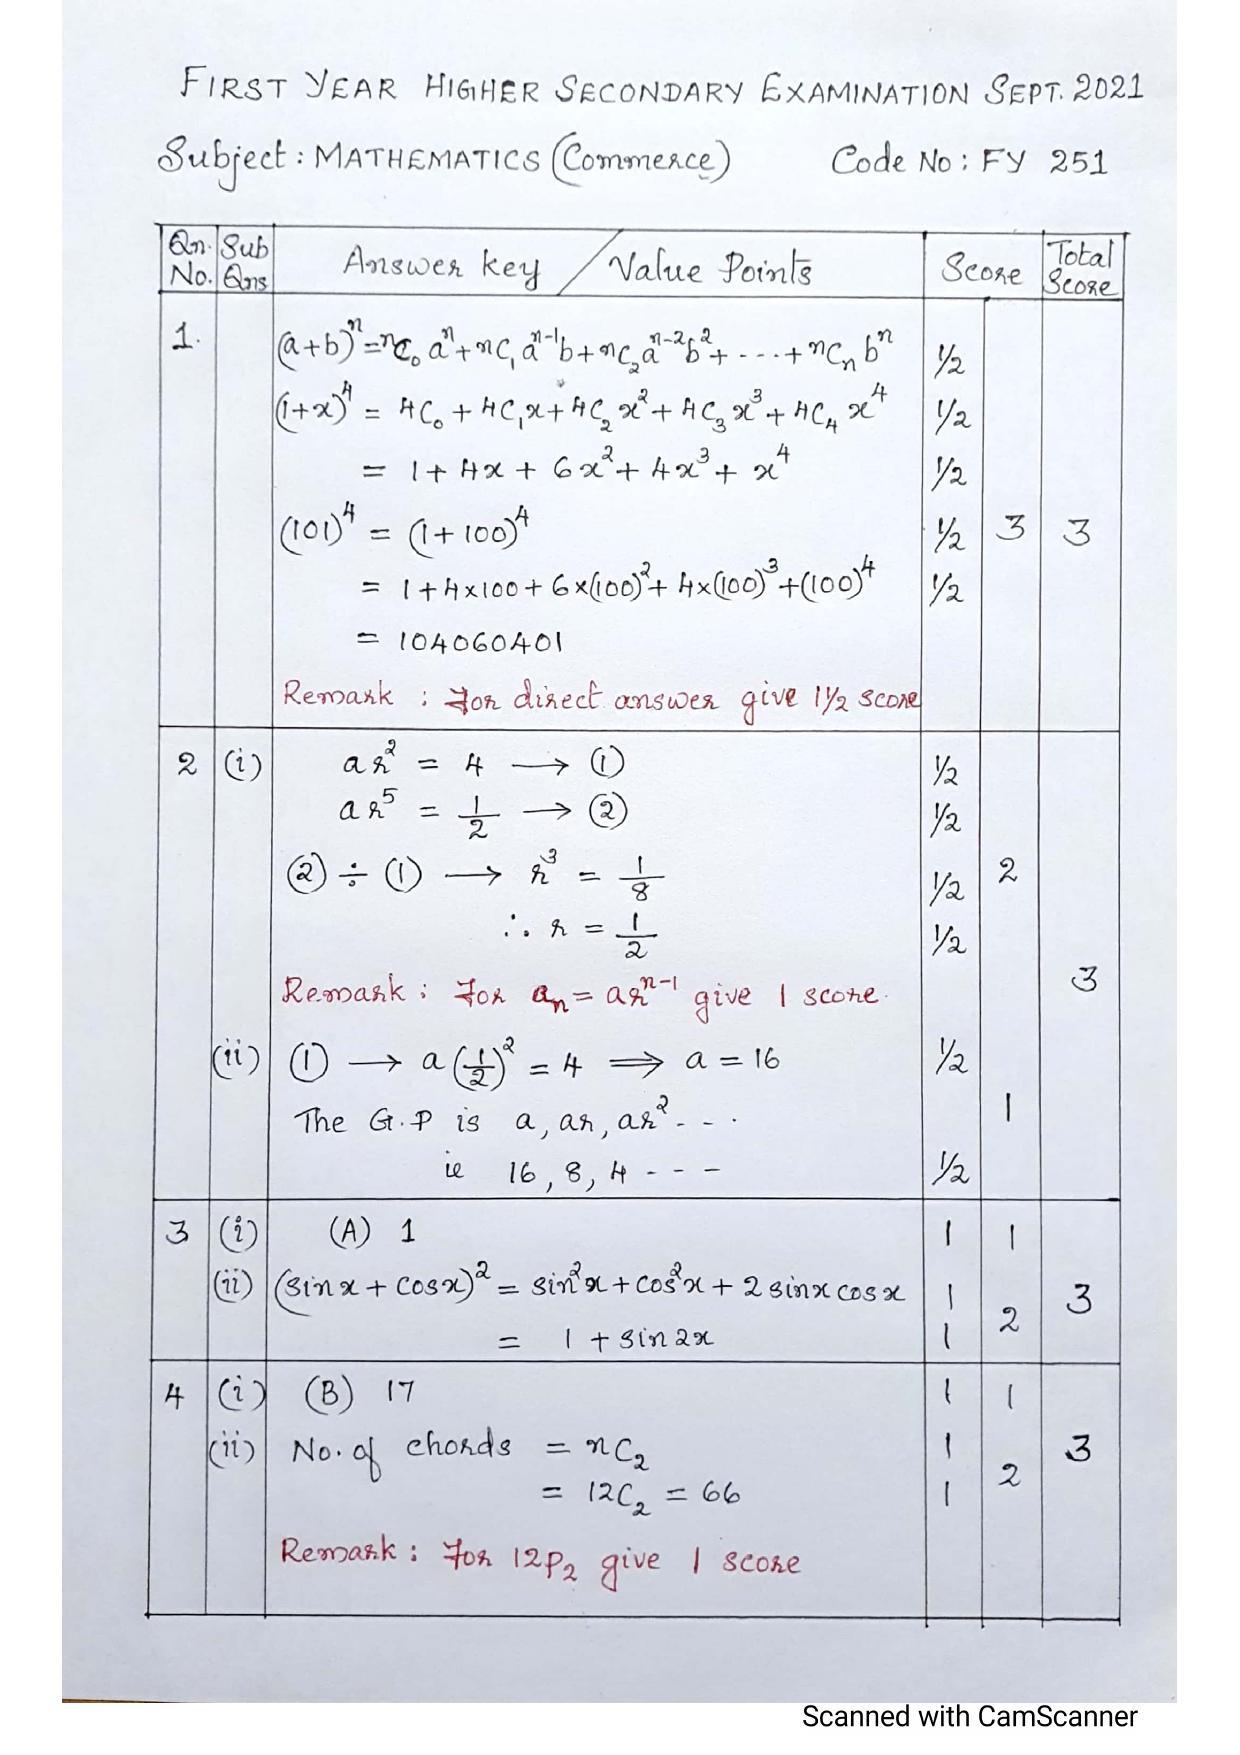 FIRST YEAR HIGHER SECONDARY EXAMINATION SEPT. 2021
Subject : MATHEMATICS (Commerce) Code No : FY 251
Qn. No. Sub Qns Answer key / Value Points Score Total Score
1. (a+b)^n = nC₀ a^n + nC₁ a^(n-1) b + nC₂ a^(n-2) b² + - - - + nCₙ b^n 1/2
(1+x)⁴ = 4C₀ + 4C₁x + 4C₂ x² + 4C₃ x³ + 4C₄ x⁴ 1/2
= 1 + 4x + 6x² + 4x³ + x⁴ 1/2
(101)⁴ = (1+100)⁴ 1/2 3 3
= 1 + 4×100 + 6×(100)² + 4×(100)³ + (100)⁴ 1/2
= 104060401
Remark : For direct answer give 1 1/2 score
2 (i) ar² = 4 → ① 1/2
ar⁵ = 1/2 → ② 1/2
② ÷ ① → r³ = 1/8 1/2 2
∴ r = 1/2 1/2
Remark : For aₙ = ar^(n-1) give 1 score. 3
(ii) ① → a(1/2)² = 4 ⟹ a = 16 1/2
The G.P is a, ar, ar² - - . 1
ie 16, 8, 4 - - - 1/2
3 (i) (A) 1 1 1
(ii) (sin x + cos x)² = sin²x + cos²x + 2 sinx cosx 1 2 3
= 1 + sin 2x 1
4 (i) (B) 17 1 1
(ii) No. of chords = nC₂ 1 2 3
= 12C₂ = 66 1
Remark : For 12P₂ give 1 score
Scanned with CamScanner